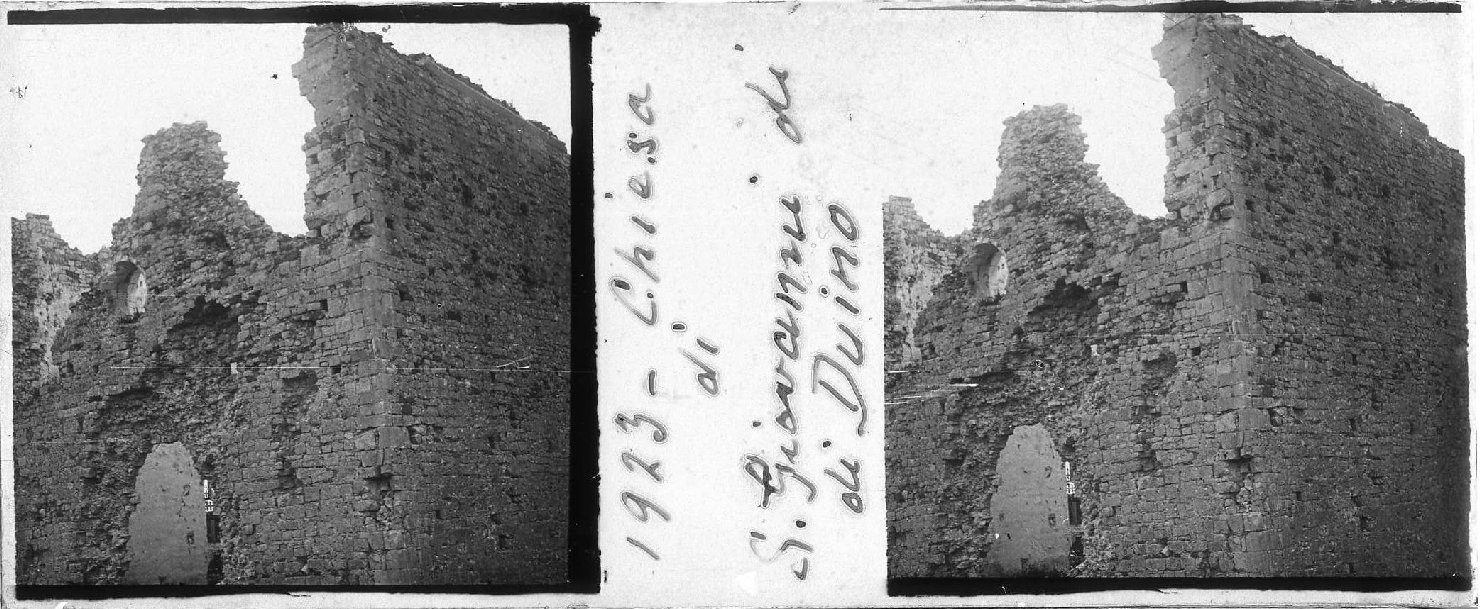 1923 - Chiesa
di
S. Giovanni di
di Duino